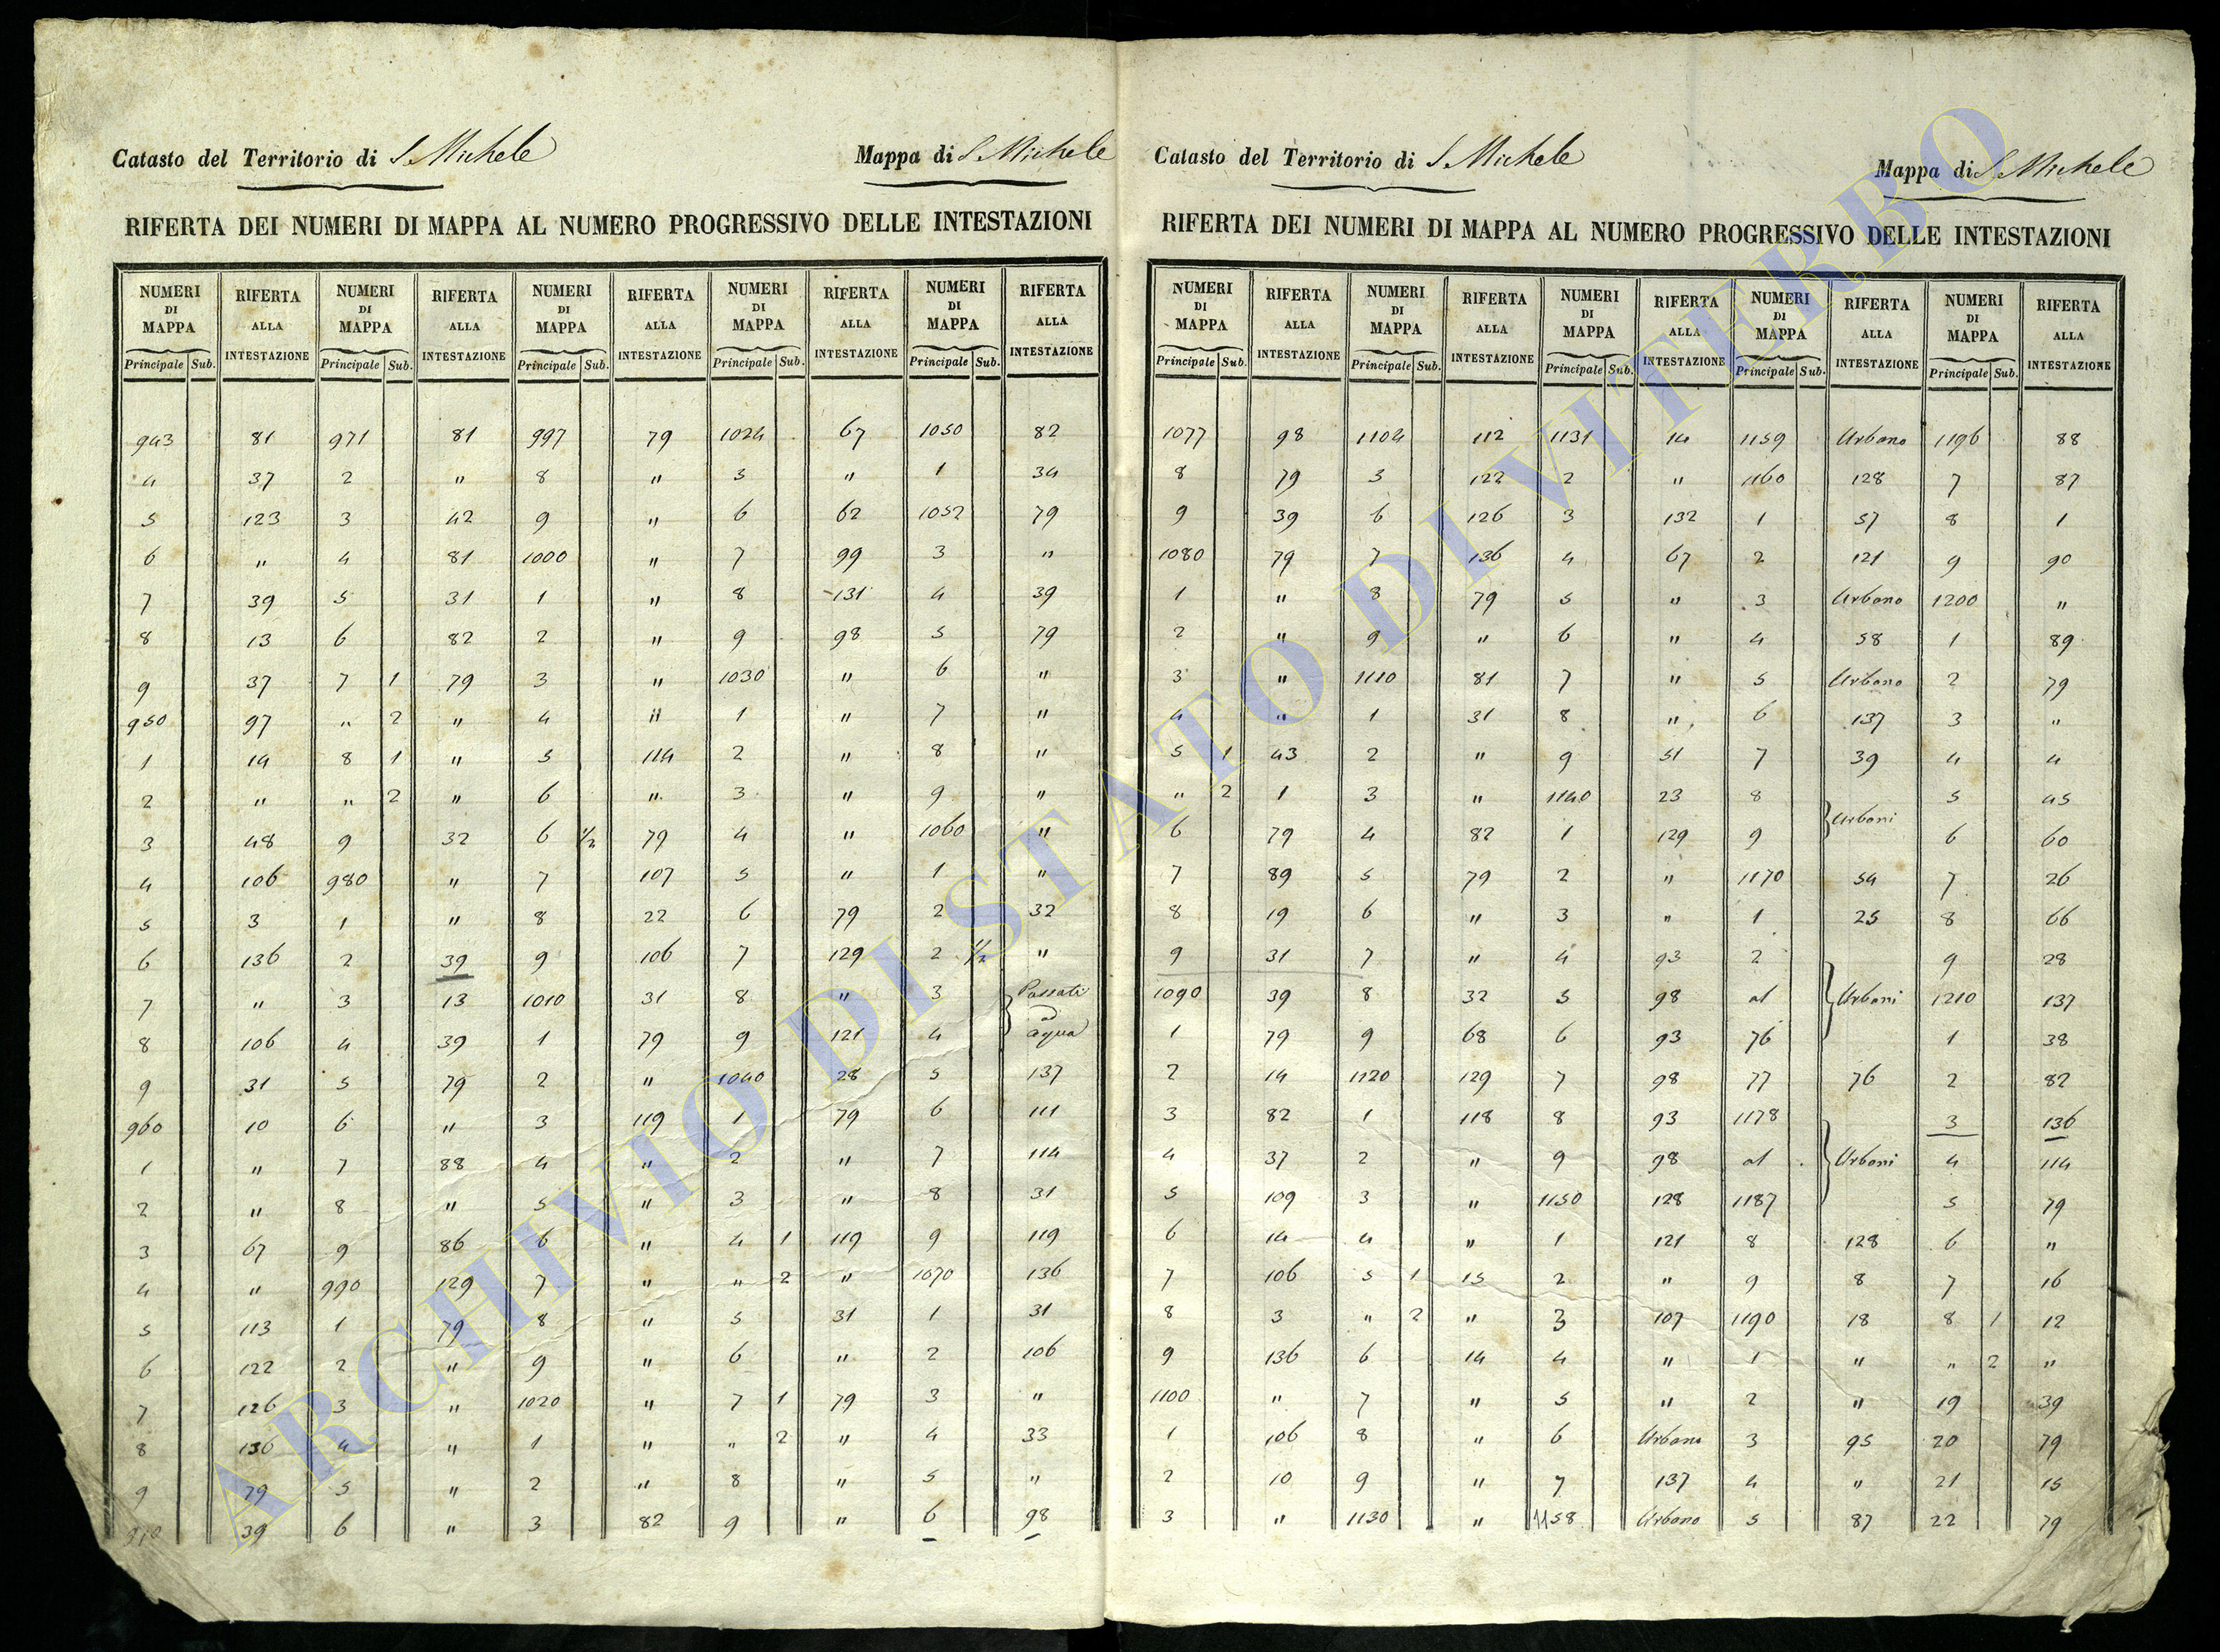 Catasto del Territorio di S Michele
Mappa di S Michele
RIFERTA DEI NUMERI DI MAPPA AL NUMERO PROGRESSIVO DELLE INTESTAZIONI
NUMERI RIFERTA NUMERI RIFERTA NUMERI RIFERTA NUMERI RIFERTA NUMERI RIFERTA
DI DI DI DI DI
MAPPA ALLA MAPPA ALLA MAPPA ALLA MAPPA ALLA MAPPA ALLA
Principale Sub. INTESTAZIONE Principale Sub. INTESTAZIONE Principale Sub. INTESTAZIONE Principale Sub. INTESTAZIONE Principale Sub. INTESTAZIONE
943 81 971 81 997 79 1024 67 1050 82
4 37 2 " 8 " 5 " 1 34
5 123 3 42 9 " 6 62 1052 79
6 " 4 81 1000 " 7 99 3 "
7 39 5 31 1 " 8 131 4 39
8 13 6 82 2 " 9 98 5 79
9 37 7 1 79 3 " 1030 " 6 "
950 97 " 2 " 4 " 1 " 7 "
1 14 8 1 " 5 114 2 " 8 "
2 " " 2 " 6 " 3 " 9 "
3 48 9 32 6 1/2 79 4 " 1060 "
4 106 980 " 7 107 5 " 1 "
5 3 1 " 8 22 6 79 2 32
6 136 2 39 9 106 7 129 2 1/2 "
7 " 3 13 1010 31 8 " 3 Passati
8 106 4 39 1 79 9 121 4 ad aqua
9 31 5 79 2 " 1040 28 5 137
960 10 6 " 3 119 1 79 6 111
1 " 7 88 4 " 2 " 7 114
2 " 8 " 5 " 3 " 8 31
3 67 9 86 6 " 4 1 119 9 119
4 " 990 129 7 " " 2 " 1070 136
5 113 1 79 8 " 5 31 1 31
6 122 2 " 9 " 6 " 2 106
7 126 3 " 1020 " 7 1 79 3 "
8 136 4 " 1 " " 2 " 4 33
9 79 5 " 2 " 8 " 5 "
970 39 6 " 3 82 9 " 6 98
Catasto del Territorio di S Michele
Mappa di S Michele
RIFERTA DEI NUMERI DI MAPPA AL NUMERO PROGRESSIVO DELLE INTESTAZIONI
NUMERI RIFERTA NUMERI RIFERTA NUMERI RIFERTA NUMERI RIFERTA NUMERI RIFERTA
DI DI DI DI DI
MAPPA ALLA MAPPA ALLA MAPPA ALLA MAPPA ALLA MAPPA ALLA
Principale Sub. INTESTAZIONE Principale Sub. INTESTAZIONE Principale Sub. INTESTAZIONE Principale Sub. INTESTAZIONE Principale Sub. INTESTAZIONE
1077 98 1104 112 1131 14 1159 Urbano 1196 88
8 79 5 122 2 " 1160 128 7 87
9 39 6 126 3 132 1 57 8 1
1080 79 7 136 4 67 2 121 9 90
1 " 8 79 5 " 3 Urbano 1200 "
2 " 9 " 6 " 4 58 1 89
3 " 1110 81 7 " 5 Urbano 2 79
4 " 1 31 8 " 6 137 3 "
5 1 43 2 " 9 51 7 39 4 4
" 2 1 3 " 1140 23 8 Urbani 5 45
6 79 4 82 1 129 9 6 60
7 89 5 79 2 " 1170 54 7 26
8 19 6 " 3 " 1 25 8 66
9 31 7 " 4 93 2 9 28
1090 39 8 32 5 98 al Urbani 1210 137
1 79 9 68 6 93 76 1 38
2 14 1120 129 7 98 77 76 2 82
3 82 1 118 8 93 1178 3 136
4 37 2 " 9 98 al Urbani 4 114
5 109 3 " 1150 128 1187 5 79
6 14 4 " 1 121 8 128 6 "
7 106 5 1 15 2 " 9 8 7 16
8 3 " 2 " 3 107 1190 18 8 1 12
9 136 6 14 4 " 1 " " 2 "
1100 " 7 " 5 " 2 " 19 39
1 106 8 " 6 Urbano 3 95 20 79
2 10 9 " 7 137 4 " 21 15
3 " 1130 " 1158 Urbano 5 87 22 79
ARCHIVIO DI STATO DI VITERBO